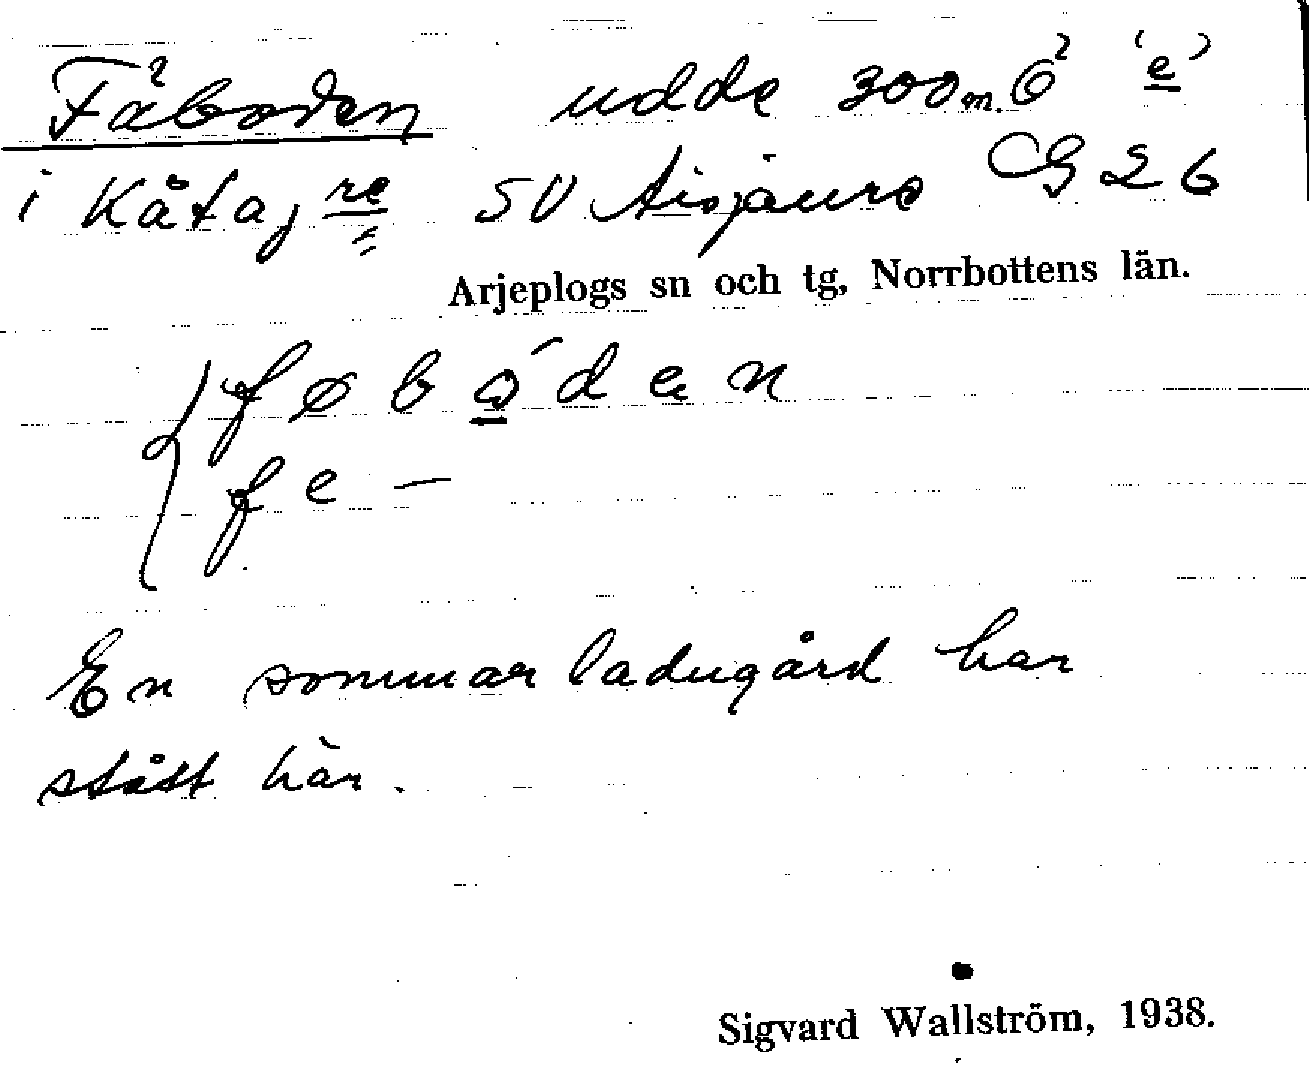 Fäboden udde 300 m. Ö (e)
i Kåtajre SV Aisjaure G 26
Arjeplogs sn och tg, Norrbottens län.
føbo̱´den
fe –
En sommarladugård har
stått här.
Sigvard Wallström, 1938.